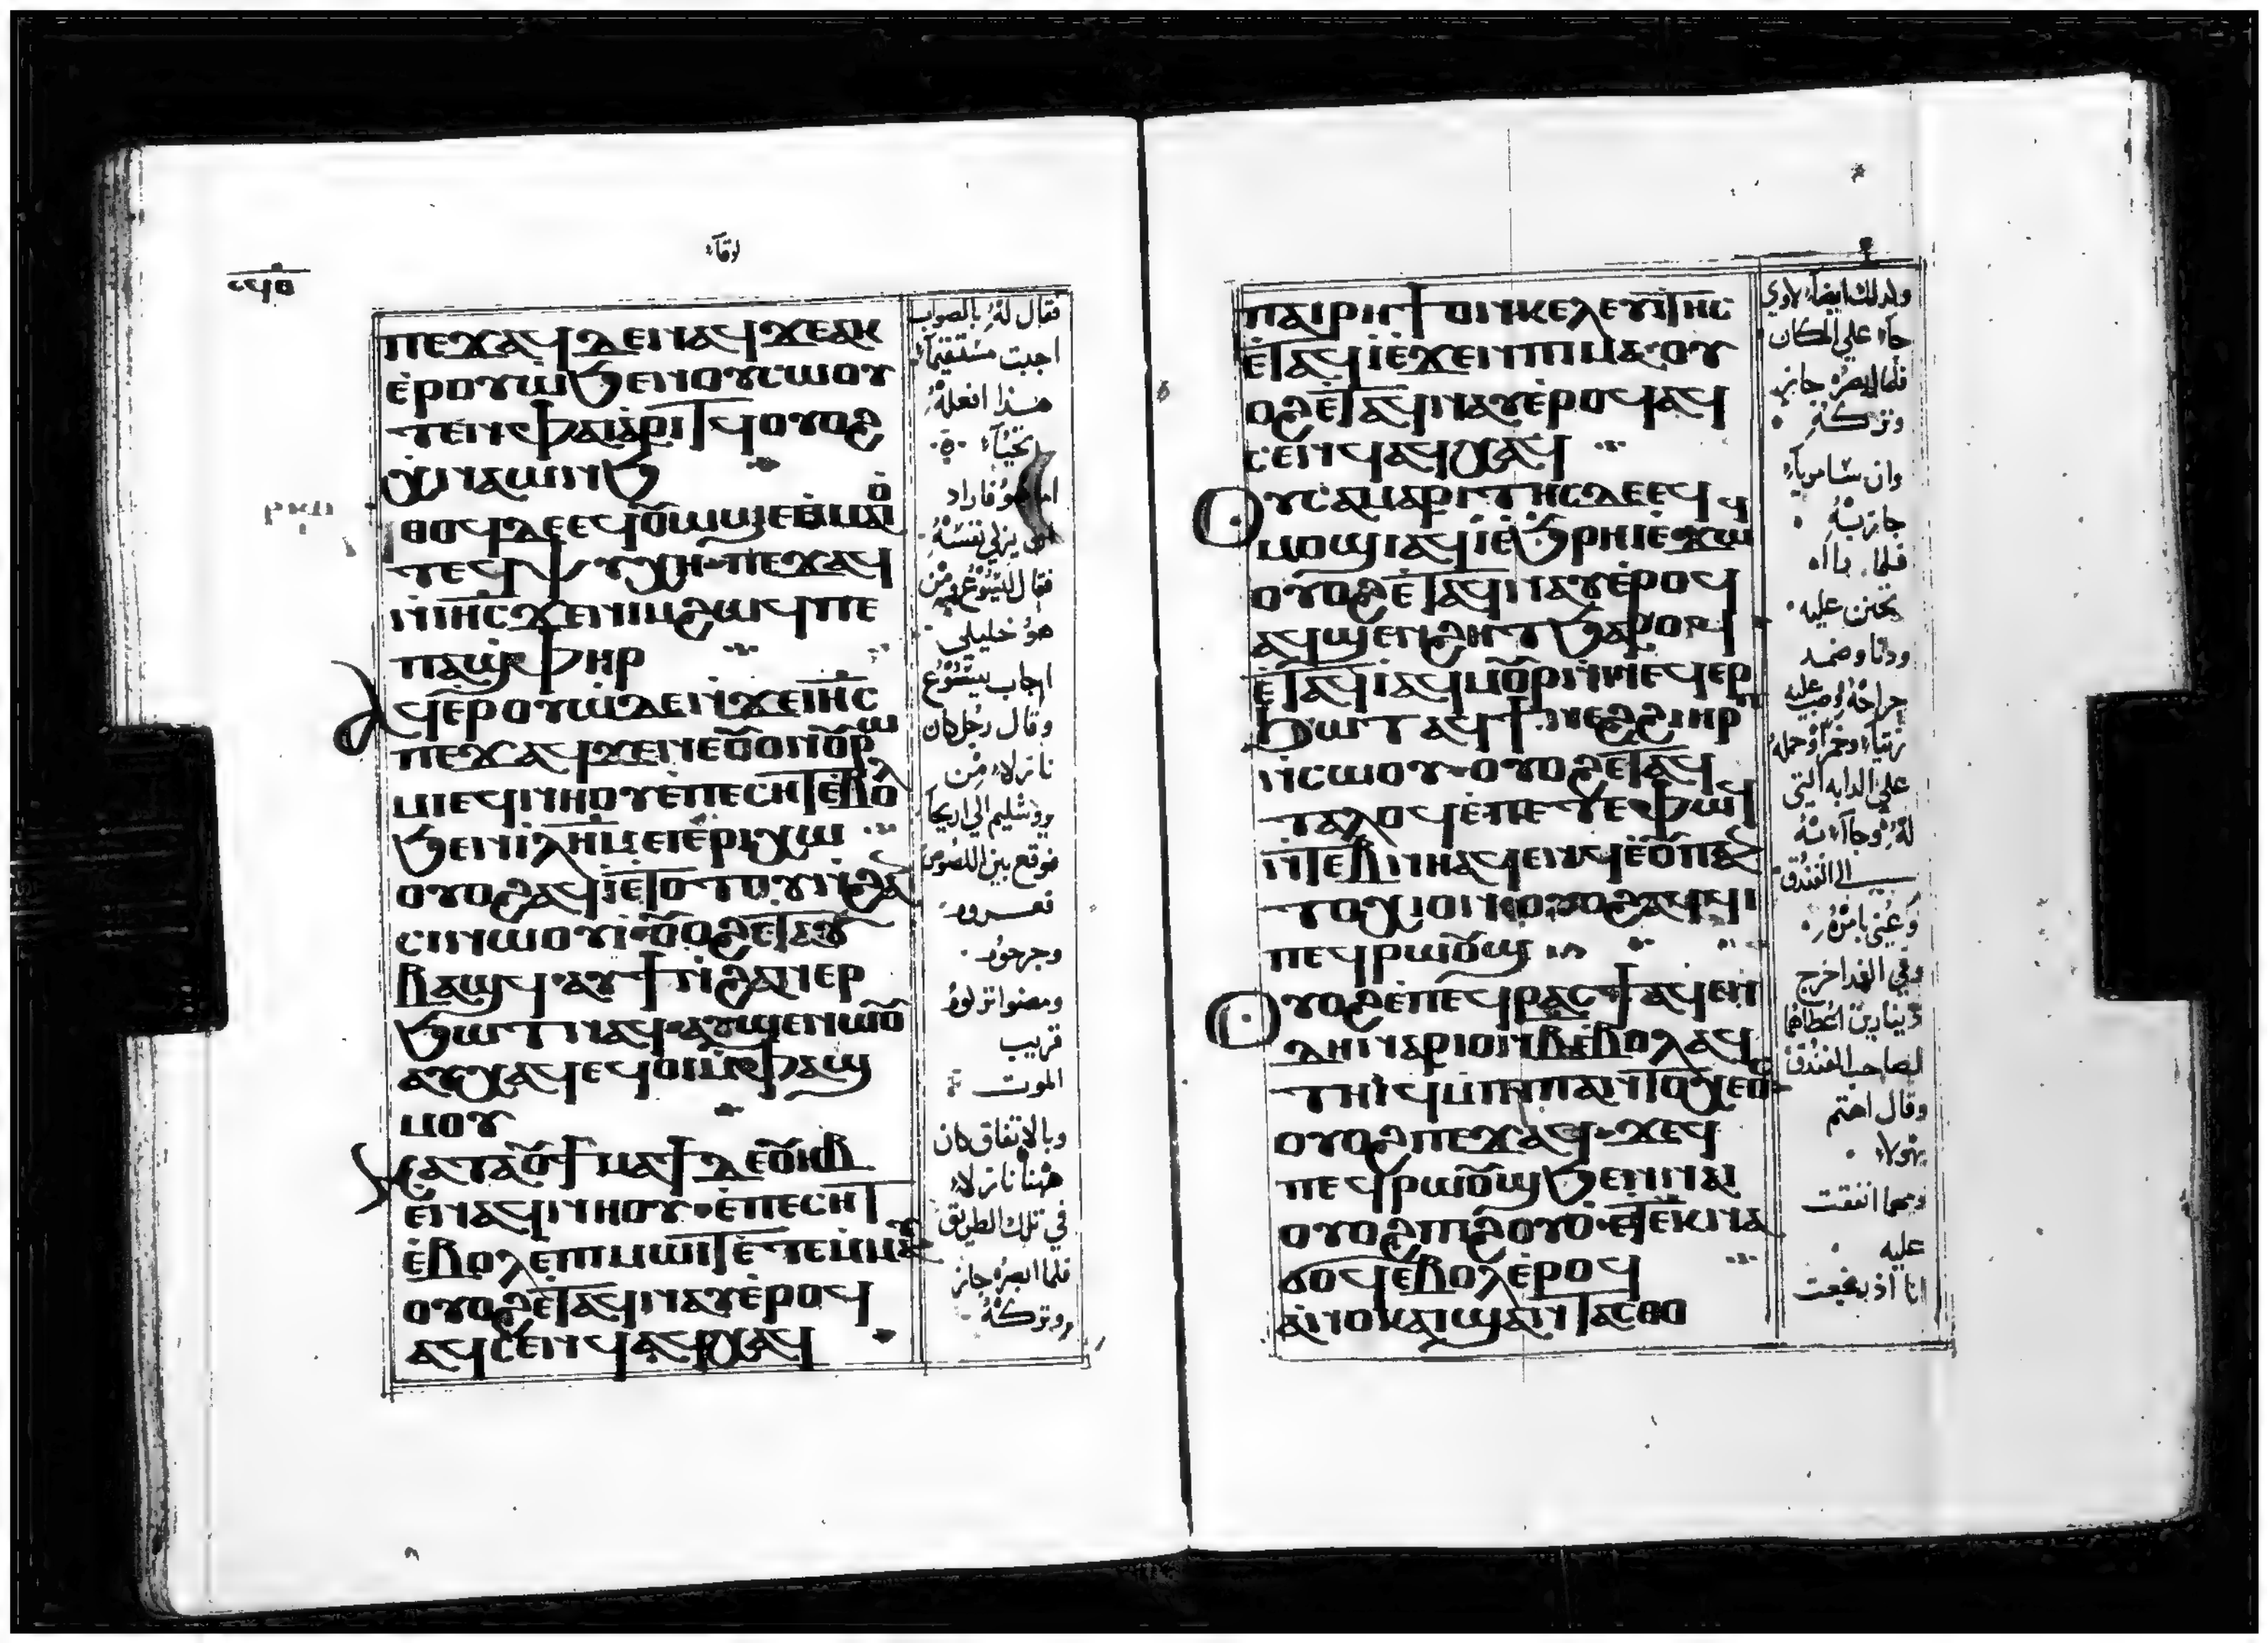 لوقا
ⲡⲉϫⲁϥ ⲇⲉ ⲛⲁϥ ϫⲉ ⲁⲕ
ⲉⲣⲟⲩⲱ ϧⲉⲛ ⲟⲩⲥⲱⲟⲩ
ⲧⲉⲛ ⲫⲁⲓ ⲁⲣⲓⲧϥ ⲟⲩⲟϩ
ⲭⲛⲁⲱⲛϧ
ⲑⲟϥ ⲇⲉ ⲉϥⲟⲩⲱϣ ⲉⲑⲙⲁⲓⲟ
ⲧⲉϥⲯⲩⲭⲏ ⲡⲉϫⲁϥ
ⲛⲓⲏⲥ ϫⲉ ⲛⲓⲙ ϩⲱϥ ⲡⲉ
ⲡⲁϣⲫⲏⲣ
ⲁϥⲉⲣⲟⲩⲱ ⲇⲉ ⲛϫⲉ ⲓⲏⲥ
ⲡⲉϫⲁϥ ϫⲉ ⲛⲉ ⲟⲩⲟⲛ ⲟⲩⲣⲱ
ⲙⲓ ⲉϥⲛⲏⲟⲩ ⲉⲡⲉⲥⲏⲧ ⲉⲃⲟⲗ
ϧⲉⲛ ⲓⲗⲏⲙ ⲉⲓⲉⲣⲓⲭⲱ
ⲟⲩⲟϩ ⲁϥⲓ ⲉⲧⲟⲧⲟⲩ ⲛϩⲁⲛ
ⲥⲓⲛⲱⲟⲩⲓ ⲟⲩⲟϩ ⲉⲧⲁⲩ
ⲃⲁϣϥ ⲁⲩϯ ⲛϩⲁⲛⲉⲣ
ϧⲱⲧ ⲛⲁϥ ⲁⲩϣⲉⲛⲱⲟⲩ
ⲁⲩⲭⲁϥ ⲉϥⲟⲓ ⲙⲫⲁϣ
ⲙⲟⲩ
ⲕⲁⲧⲁ ⲟⲩϯⲙⲁϯ ⲇⲉ ⲟⲩⲏⲃ
ⲉⲛⲁϥⲛⲏⲟⲩ ⲉⲡⲉⲥⲏⲧ
ⲉⲃⲟⲗ ϩⲓ ⲡⲓⲙⲱⲓⲧ ⲉⲧⲉⲙⲙⲁⲩ
ⲟⲩⲟϩ ⲉⲧⲁϥⲛⲁⲩ ⲉⲣⲟϥ
ⲁϥⲥⲉⲛϥ ⲁϥⲭⲁϥ
فقال له بالصواب
اجبت مستقيما
هذا افعله
تحيا
اما هو فاراد
ان يزكي نفسه
فقال ليسوع من
هو خليلي
اجاب يسوع
وقال رجل كان
نازلا من
يروشليم الي اريحا
فوقع بين اللصوص
فعروه
وجرحوه
ومضوا تركوه
قريب
الموت
وبالاتفاق كان
نازلا
في تلك الطريق
فلما ابصره جاز
وتركه
ⲡⲁⲓⲣⲏϯ ⲟⲛ ⲕⲉⲗⲉⲩⲓⲧⲏⲥ
ⲉⲧⲁϥⲓ ⲉϫⲉⲛ ⲡⲓⲙⲁ ⲟⲩ
ⲟϩ ⲉⲧⲁϥⲛⲁⲩ ⲉⲣⲟϥ ⲁϥ
ⲥⲉⲛϥ ⲁϥⲭⲁϥ
ⲟⲩⲥⲁⲙⲁⲣⲓⲧⲏⲥ ⲇⲉ ⲉϥ
ⲙⲟϣⲓ ⲁϥⲓ ⲉϧⲣⲏⲓ ⲉϫⲱϥ
ⲟⲩⲟϩ ⲉⲧⲁϥⲛⲁⲩ ⲉⲣⲟϥ
ⲁϥϣⲉⲛϩⲏⲧ ϧⲁⲣⲟϥ
ⲉⲧⲁϥⲓ ⲁϥⲙⲟⲩⲣ ⲛⲛⲉϥⲉⲣ
ϧⲱⲧ ⲁϥϯ ⲛⲉϩ ϩⲓ ⲏⲣⲡ
ⲛⲥⲱⲟⲩ ⲟⲩⲟϩ ⲉⲧⲁϥ
ⲧⲁⲗⲟϥ ⲉⲡⲉⲧⲉⲫⲱϥ
ⲛⲧⲉⲃⲛⲏ ⲁϥⲉⲛϥ ⲉⲟⲩⲡⲁⲛ
ⲧⲟⲭⲓⲟⲛ ⲟⲩⲟϩ ⲁϥϥⲓ
ⲡⲉϥⲣⲱⲟⲩϣ
ⲟⲩⲟϩ ⲉⲡⲉϥⲣⲁⲥϯ ⲁϥⲉⲛ
ⲇⲏⲛⲁⲣⲓⲟⲛ ⲃ ⲉⲃⲟⲗ ⲁϥ
ⲧⲏⲓϥ ⲙⲡⲓⲡⲁⲛⲧⲟⲭⲉⲟⲥ
ⲟⲩⲟϩ ⲡⲉϫⲁϥ ϫⲉ ϥⲓ
ⲡⲉϥⲣⲱⲟⲩϣ ϧⲉⲛ ⲛⲁⲓ
ⲟⲩⲟϩ ⲡⲓϩⲟⲩⲟ ⲉⲧⲉⲕⲛⲁ
ϭⲟϥ ⲉⲃⲟⲗ ⲉⲣⲟϥ
ⲁⲛⲟⲕ ⲁⲓϣⲁⲛⲧⲁⲥⲑⲟ
وكذلك ايضا لاوي
جاء علي المكان
فلما ابصره جاز
وتركه
وان سامريا
جاز به
فلما راه
تحنن عليه
ودنا وضمد
جراحه وصب عليه
زيتا وخمرا وحمله
علي الدابه التي
له وجاء به
الي الفندق
وعني بامره
وفي الغد اخرج
دينارين اعطاهما
لصاحب الفندق
وقال اهتم
بهولاء
ومهما انفقت
عليه
انا اذ رجعت